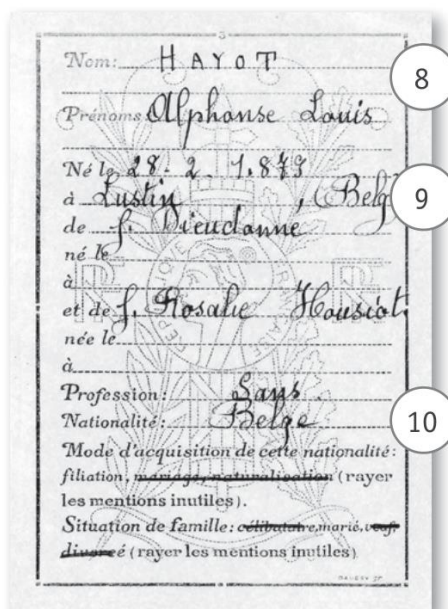 3
Nom: HAYOT
8
Prénoms Alphonse Louis
Né le 28. 2. 1.879
à Lustin, (Belg
9
de f. Dieudonne
né le
à
et de f. Rosalie Housiot.
née le
à
Profession: Sans
Nationalité: Belge
10
Mode d'acquisition de cette nationalité:
filiation, mariage, naturalisation (rayer
les mentions inutiles).
Situation de famille: célibataire, marié, veuf,
divorcé (rayer les mentions inutiles)
RF
RÉPUBLIQUE FRANÇAISE
RF